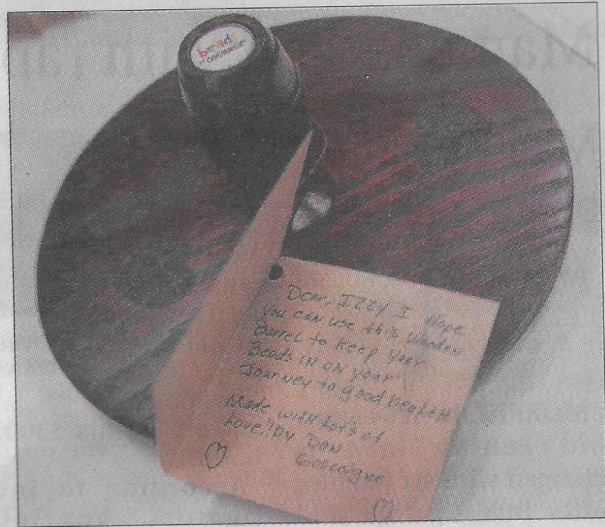 beads
of courage
Dear, Izzy I Hope
you can use this wooden
Barrel to keep your
Beads in on your
Journey to good Health
Made with Lot's of
Love!! by Dan
Gascoigne